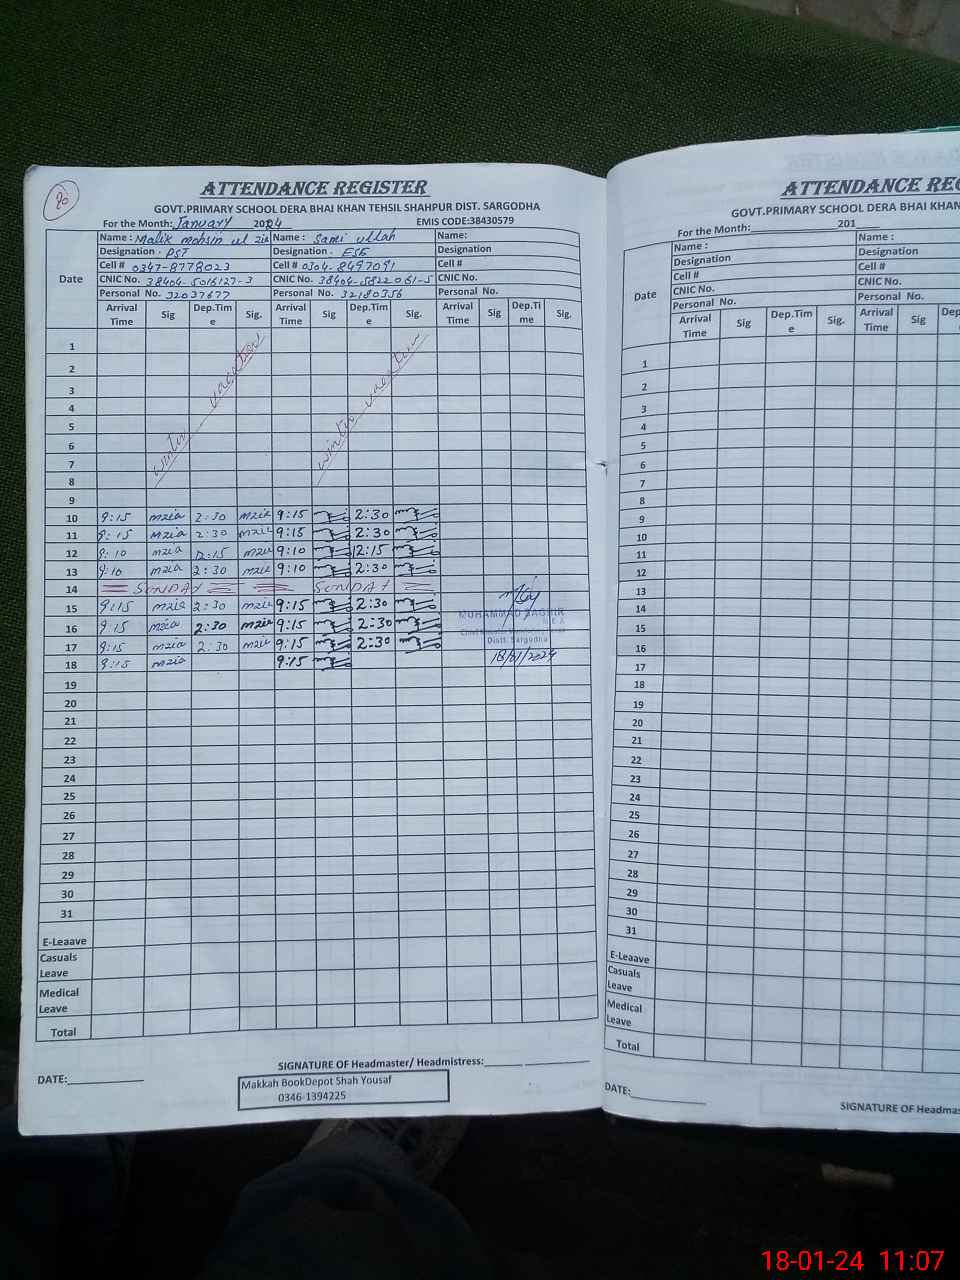 20
ATTENDANCE REGISTER
GOVT.PRIMARY SCHOOL DERA BHAI KHAN TEHSIL SHAHPUR DIST. SARGODHA
For the Month: January 2024 EMIS CODE:38430579
Date
Name : Malik mohsin ul zia Name : Sami ullah Name:
Designation . PST Designation . ESE Designation
Cell # 0347-8778023 Cell # 0304-8497091 Cell #
CNIC No. 38404-5016127-3 CNIC No. 38404-5822061-5 CNIC No.
Personal No. 32037677 Personal No. 32180356 Personal No.
Arrival Time Sig Dep.Time Sig. Arrival Time Sig Dep.Time Sig. Arrival Time Sig Dep.Time Sig.
1
2
3
4
5
6
7
8
winter vacation winter vacation
9
10 9:15 mzia 2:30 mzia 9:15 2:30
11 9:15 mzia 2:30 mzia 9:15 2:30
12 9:10 mzia 12:15 mzia 9:10 12:15
13 9:10 mzia 2:30 mzia 9:10 2:30
14 SUNDAY SUNDAY
15 9:15 mzia 2:30 mzia 9:15 2:30
16 9:15 mzia 2:30 mzia 9:15 2:30
17 9:15 mzia 2:30 mzia 9:15 2:30
18 9:15 mzia 9:15
MUHAMMAD SAGHIR
M.E.A
Distt. Sargodha
18/01/2024
19
20
21
22
23
24
25
26
27
28
29
30
31
E-Leaave
Casuals Leave
Medical Leave
Total
SIGNATURE OF Headmaster/ Headmistress:
DATE:
Makkah BookDepot Shah Yousaf
0346-1394225
ATTENDANCE REG
GOVT.PRIMARY SCHOOL DERA BHAI KHAN
For the Month: 201
Date
Name : Name :
Designation Designation
Cell # Cell #
CNIC No. CNIC No.
Personal No. Personal No.
Arrival Time Sig Dep.Time Sig. Arrival Time Sig Dep
1
2
3
4
5
6
7
8
9
10
11
12
13
14
15
16
17
18
19
20
21
22
23
24
25
26
27
28
29
30
31
E-Leaave
Casuals Leave
Medical Leave
Total
DATE:
SIGNATURE OF Headmas
18-01-24 11:07